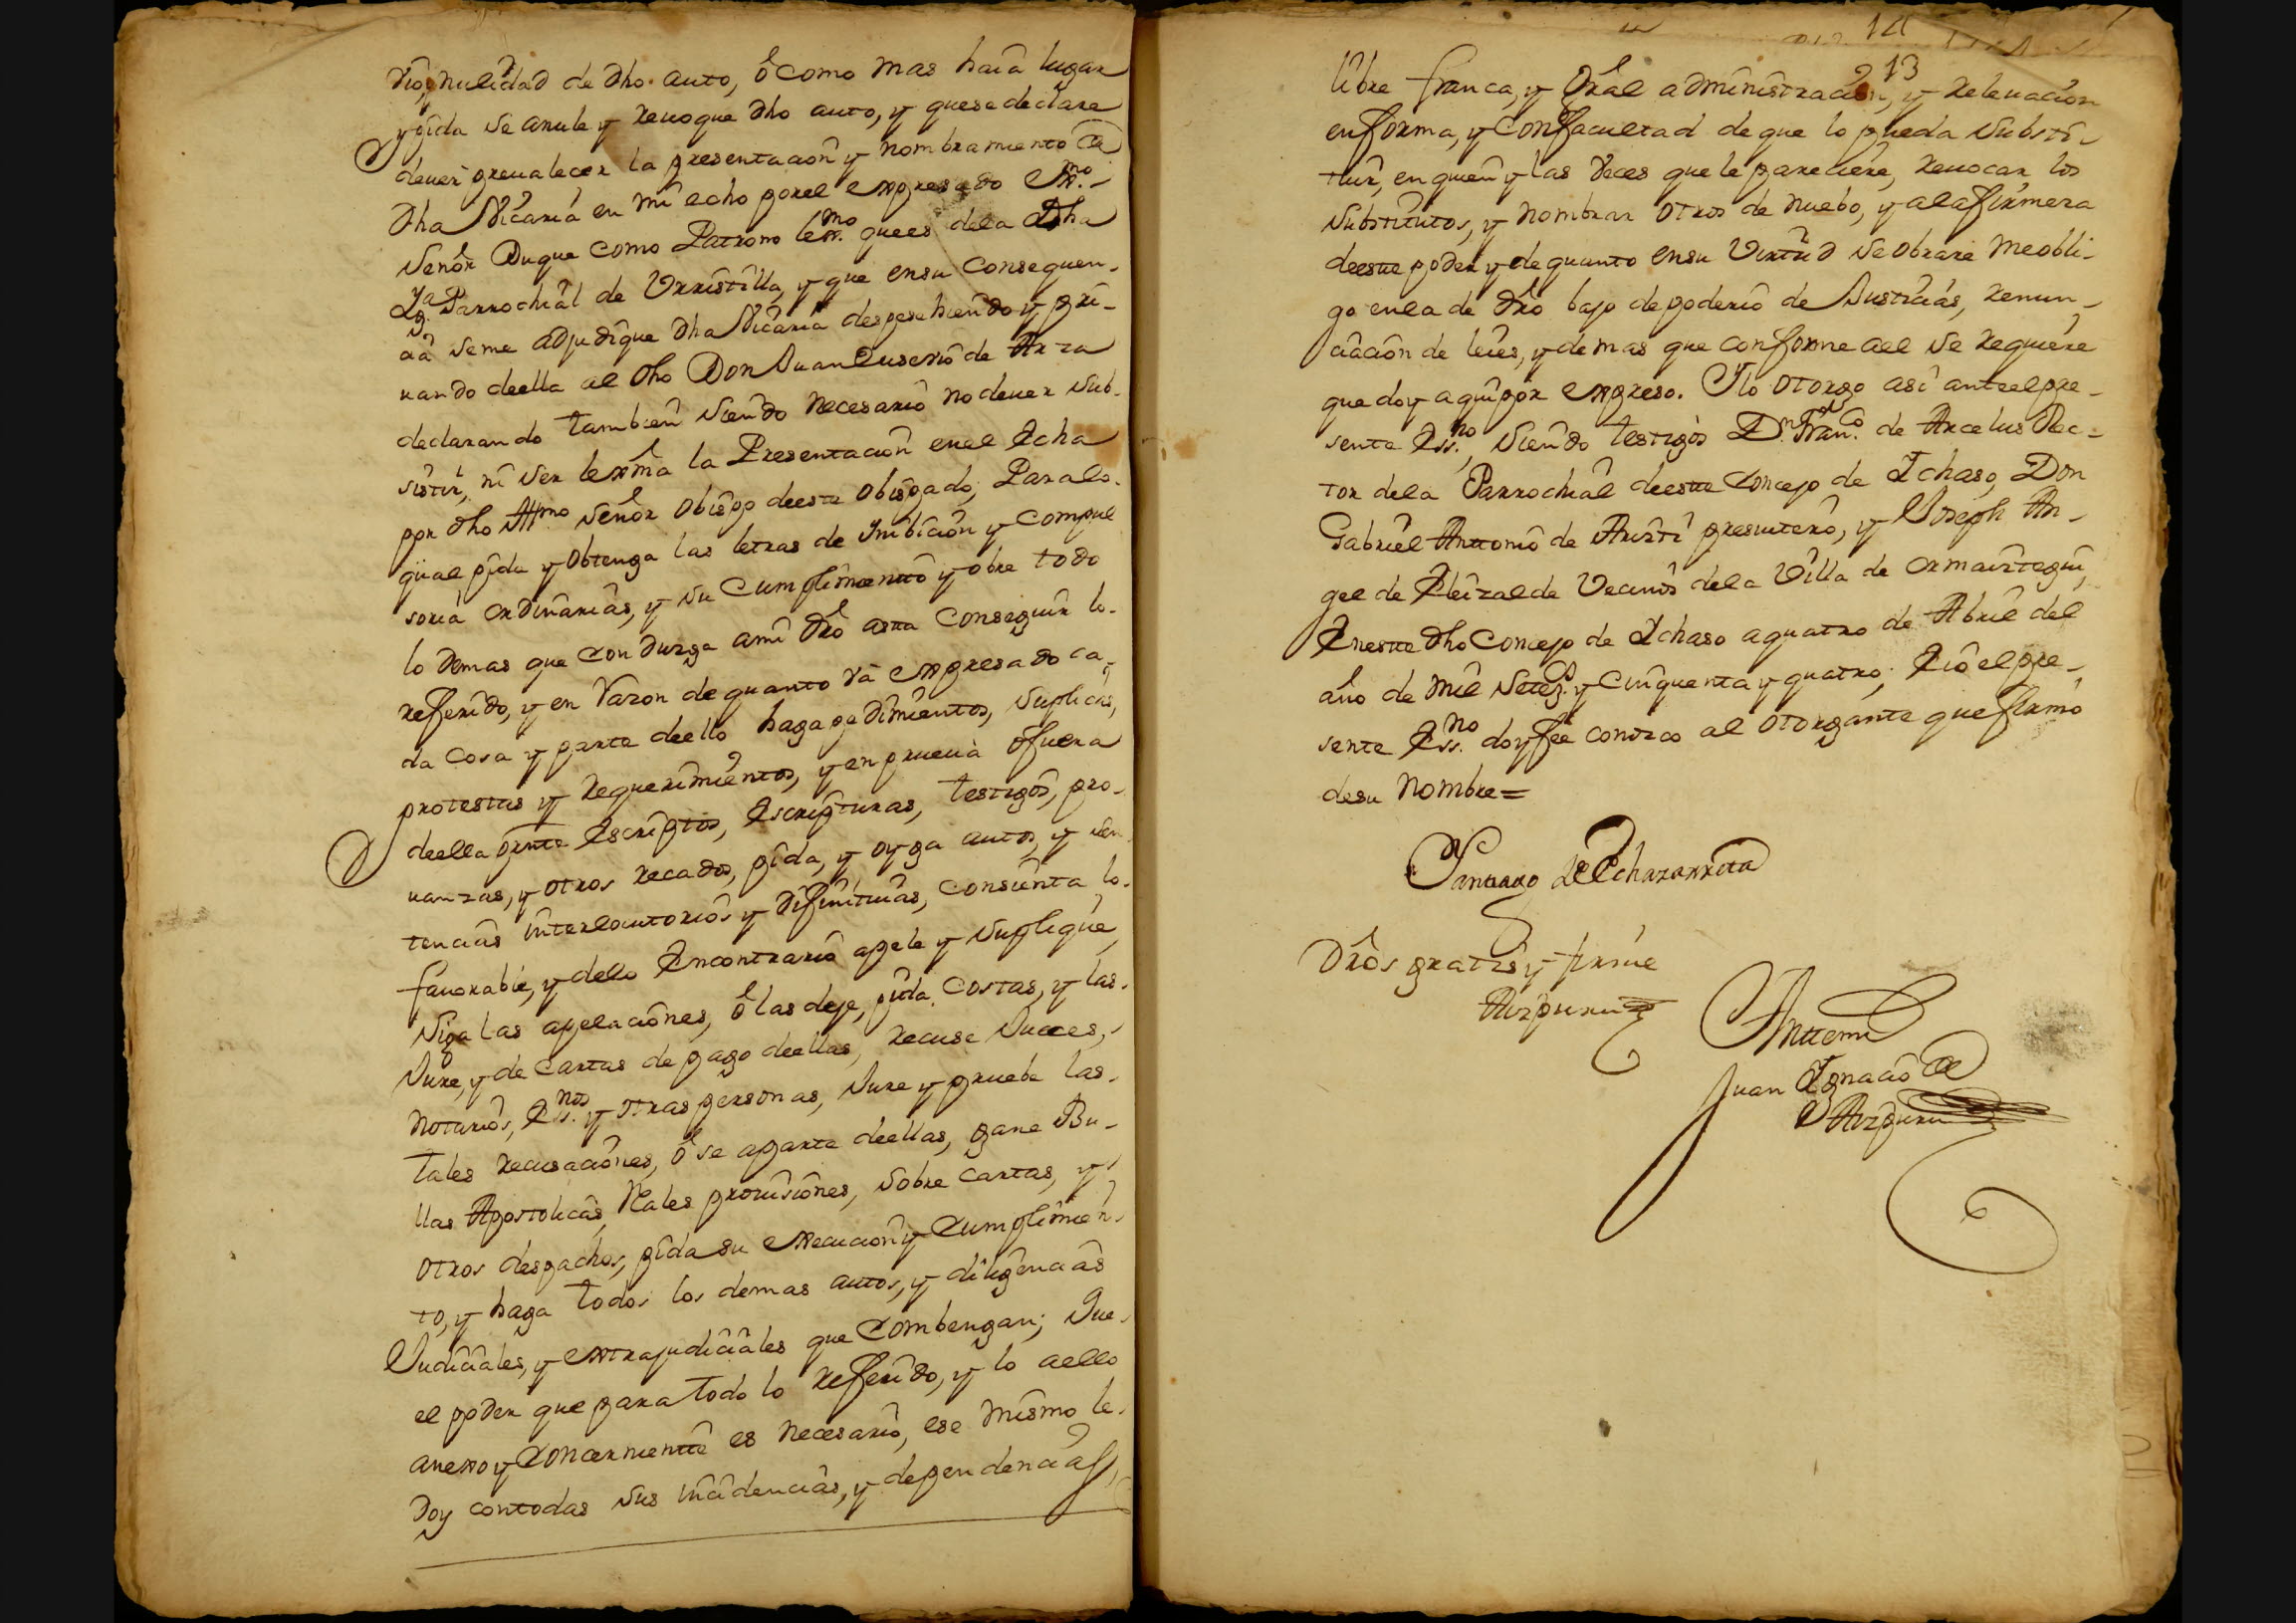 dio, nulidad de dho. auto, ô como mas haia lugar
y pida se anule y reuoque dho auto, y quese declare
deuer preualecer la presentacion y nombramiento de
dha Vicaria en mi echo porel expresado Exmo.
Señor Duque como Patrono lexmo. quees dela dha
Yg.a Parrochial de Urrestilla, y que ensu consequen-
cia seme adjudique dha Vicaria desposehiendo y pri-
uando deella al dho Don Juan Eusevio de Arza
declarando tambien siendo necesario no deuer sub-
sistir, ni ser lexma la Presentacion enel Echa
por dho Illmo Señor Obispo deeste Obispado, Paralo-
qual pida y obtenga las letras de Ynibicion y compul
soria ordinarias, y su cumplimiento y obre todo
lo demas que conduzga ami dro asta conseguir lo-
referido, y en razon de quanto va expresado ca-
da cosa y parte deello haga pedimientos, suplicas,
protestas y requerimientos, y en prueua ofuera
deella presente Escriptos, Escripturas, testigos, pro-
uanzas, y otros recados, pida, y oyga autos, y sen
tencias interlocutorios y difinitiuas, consienta lo-
fauorable, y delo Encontrario apele y suplique,
siga las apelaciones, ô las deje, pida costas, y las-
Jure, y de cartas de pago deellas, recuse Jueces,
Notarios, Ess.nos y otras personas, Jure y pruebe las-
tales recusaciones, ô se aparte deellas, gane Bu-
llas Apostolicas, Rales prouisiones, sobre cartas, y
otros despachos, pida su execucion y cumplimien-
to, y haga todos los demas autos, y diligencias
Judiciales, y extrajudiciales que combengan; Que
el poder que para todo lo referido, y lo aello
anexo y concerniente es necesario, ese mismo le-
doy contodas sus incidencias, y dependencias,
14
13
libre franca, y Gral administracion, y releuacion
enforma, y confacultad de que lo pueda substi-
tuir, en quien y las veces que le pareciere, reuocar los
substitutos, y nombrar otros de nuebo, y alafirmeza
deeste poder y de quanto ensu virtud se obrare meobli-
go enla de dro bajo de poderio de Justicias, renun-
ciacion de leies, y demas que conforme ael se requiere
que doy aqui por expreso. Ylo otorgo asi anteelpre-
sente Ess.no, siendo testigos Dn. Fran.co de Arcelus Rec-
tor dela Parrochial deeste Concejo de Ychaso, Don
Gabriel Anttonio de Aristi presuitero, y Joseph An-
gel de Eleizalde Vecinos dela Villa de Ormaiztegui,
Eneste dho Concejo de Ychaso aquatro de Abril del
año de mil setez.s y cinquenta y quatro; Eio elpre-
sente Ess.no doy fee conozco al otorgante que firmó
desu nombre=
Santiago de Echazarreta
Dros gratis y firme
Aizpuru
Anttemi
Juan Ygnacio de
Aizpuru